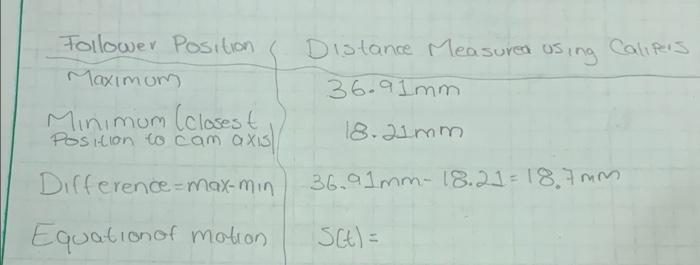 Follower Position Distance Measured using Calipers
Maximum 36.91mm
Minimum (closest
Position to cam axis) 18.21mm
Difference=max-min 36.91mm-18.21=18.7mm
Equation of motion S(t)=